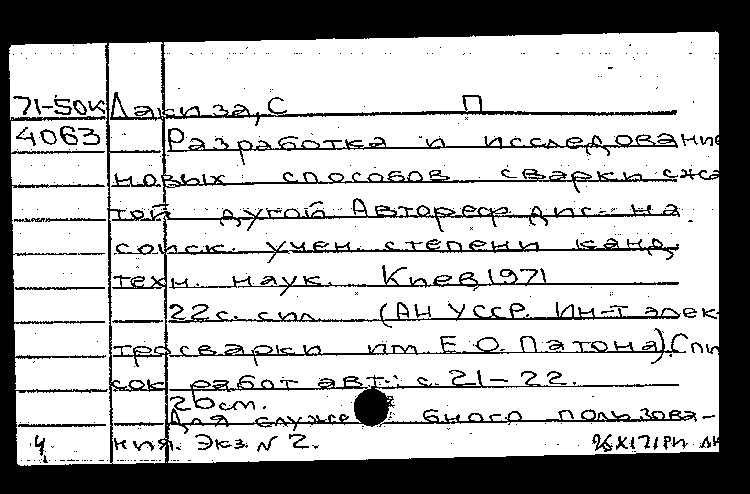 71-50к Лакиза, С П
4063 Разработка и исследование
новых способов сварки сжа
той дугой Автореф дис. на
соиск. учен. степени канд.
техн. наук. Киев, 1971
22 с. с ил (АН УССР. Ин-т элек
тросварки им. Е. О. Патона). Спи
сок работ авт.: с. 21-22.
20 см.
Для служебного пользова-
ния. Экз. N 2.